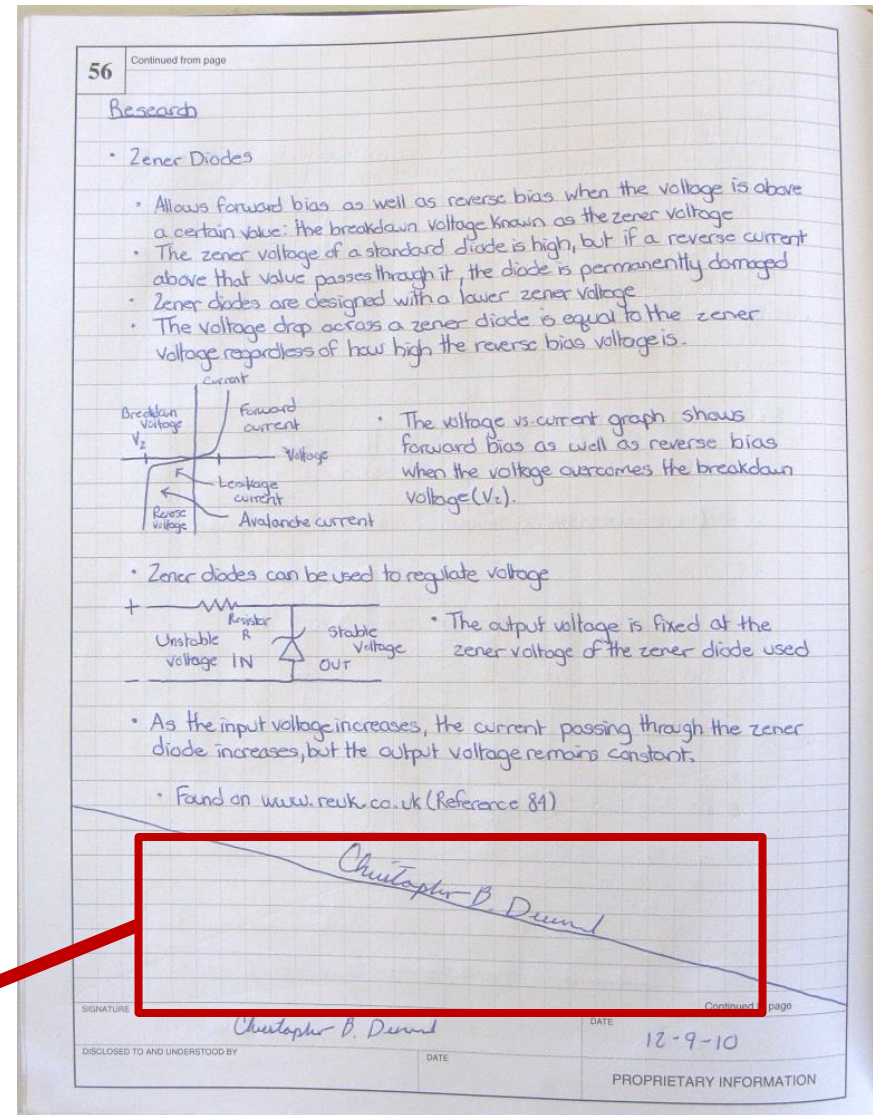 56
Continued from page
Research
· Zener Diodes
· Allows forward bias as well as reverse bias when the voltage is above
a certain value: the breakdown voltage known as the zener voltage
· The zener voltage of a standard diode is high, but if a reverse current
above that value passes through it, the diode is permanently damaged
· Zener diodes are designed with a lower zener voltage
· The voltage drop across a zener diode is equal to the zener
voltage regardless of how high the reverse bias voltage is.
Current
Breakdown
Voltage
Vz
Forward
current
Voltage
Leakage
current
Reverse
voltage
Avalanche current
· The voltage vs. current graph shows
forward bias as well as reverse bias
when the voltage overcomes the breakdown
voltage (Vz).
· Zener diodes can be used to regulate voltage
+
Resistor
R
Unstable
voltage IN
Stable
Voltage
OUT
−
· The output voltage is fixed at the
zener voltage of the zener diode used
· As the input voltage increases, the current passing through the zener
diode increases, but the output voltage remains constant.
· Found on www.reuk.co.uk (Reference 84)
Christopher B.
Continued page
SIGNATURE
Christopher B.
DATE
12-9-10
DISCLOSED TO AND UNDERSTOOD BY
DATE
PROPRIETARY INFORMATION